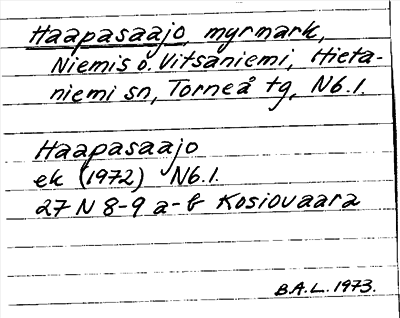 Haapasaajo, myrmark,
Niemis o. Vitsaniemi, Hieta-
niemi sn, Torneå tg, N6.1.
Haapasaajo
ek (1972) N6.1.
27 N 8-9 a-b Kosiovaara
B.A.L. 1973.